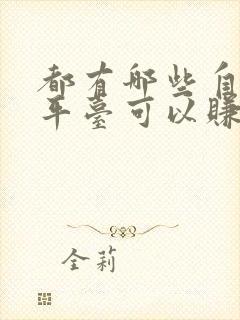 都有哪些自
平臺可以賺
全莉